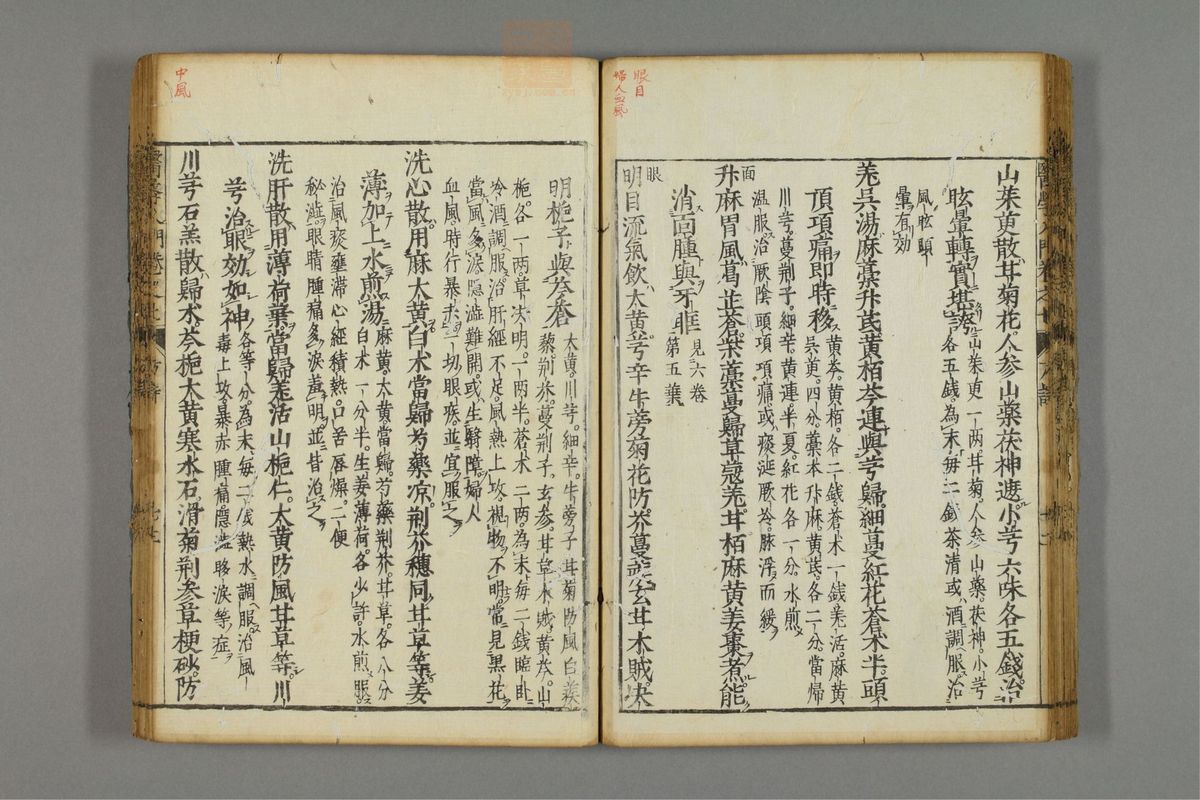 眼目
婦人血風
山茱萸散甘菊花人参山藥茯神遮小芎六味各五錢治
眩暈轉實堪誇山茱萸一两甘菊人参山藥茯神小芎
各五錢為末每二錢茶清或酒調服治
風眩頭
暈有効
羌吳湯麻藁升芪黃栢芩連與芎歸細蔓紅花蒼术半頭
頂項痛即時移黃芩黃栢各二錢蒼术一錢羌活麻黃
吳萸四分藁本升麻黃芪各二分當歸
川芎蔓荆子細辛黃連半夏紅花各一分水煎
温服治厥陰頭項痛或痰涎厥冷脉浮而緩
面
升麻胃風葛芷蒼柴藁蔓歸草蔻羌甘栢麻黃姜棗煮能
消面腫與牙
見六卷
第五葉
眼
明目流氣飲大黃芎辛牛蒡菊花防芥蔓蒺玄甘木賊决
中風
明梔子與芩蒼大黃川芎細辛牛蒡子甘菊防風白蒺
藜荆芥蔓荆子玄参甘草木賊黃芩山
梔各一两草决明一两半蒼术二两為末每二錢臨卧
冷酒調服治肝經不足風熱上攻視物不明常見黑花
當風多淚隱澁難開或生翳障婦人
血風時行暴赤一切眼疾並宜服之
洗心散用麻大黃白术當歸芍藥凉荆芥穗同甘草等姜
薄加上水煎湯麻黃大黃當歸芍藥荆芥甘草各八分
白术一分半生姜薄荷各少許水煎服
治風痰壅滞心經積熱口苦唇燥二便
秘澁眼睛腫痛多淚羞明並皆治之
洗肝散用薄荷葉當歸羌活山梔仁大黃防風甘草等川
芎治眼効如神各等分為末每二錢熱水調服治風
毒上攻暴赤腫痛隱澁眵淚等症
川芎石羔散歸术芩梔大黃寒水石滑菊荆参草梗砂防